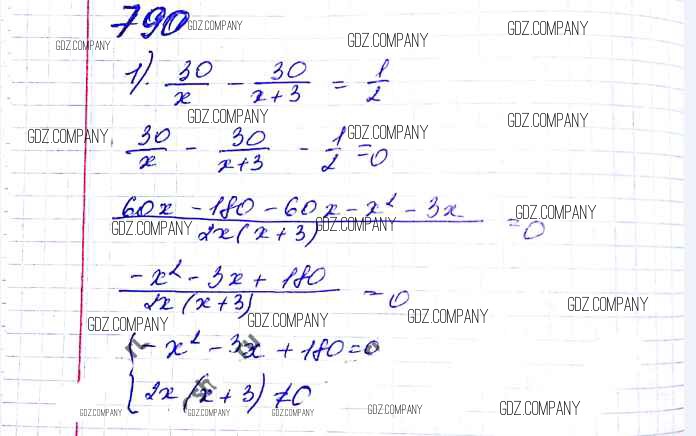 790
GDZ.COMPANY
GDZ.COMPANY
GDZ.COMPANY
GDZ.COMPANY
1). 30/x - 30/(x+3) = 1/2
GDZ.COMPANY
GDZ.COMPANY
GDZ.COMPANY
GDZ.COMPANY
30/x - 30/(x+3) - 1/2 = 0
(60x - 180 - 60x - x² - 3x)/(2x(x+3)) = 0
GDZ.COMPANY
GDZ.COMPANY
GDZ.COMPANY
(-x² - 3x + 180)/(2x(x+3)) = 0
GDZ.COMPANY
GDZ.COMPANY
GDZ.COMPANY
GDZ.COMPANY
{ -x² - 3x + 180 = 0
2x(x+3) ≠ 0
GDZ.COMPANY
GDZ.COMPANY
GDZ.COMPANY
GDZ.COMPANY
GDZ.COMPANY